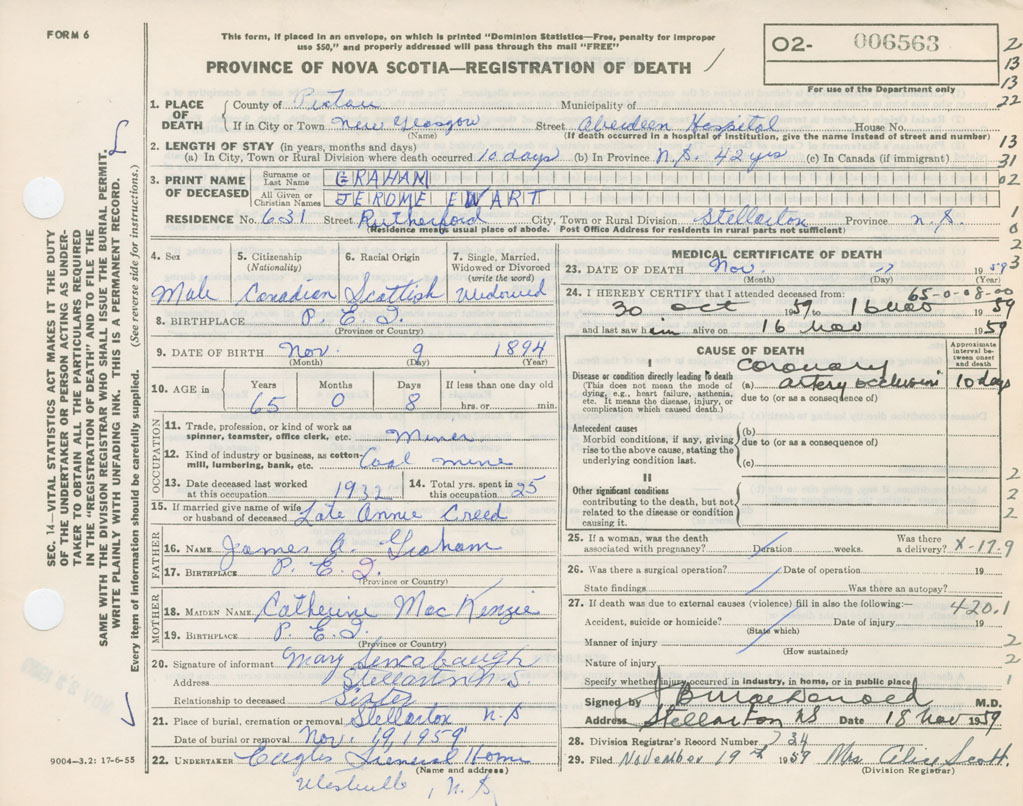 FORM 6
This form, if placed in an envelope, on which is printed "Dominion Statistics—Free, penalty for improper
use $50," and properly addressed will pass through the mail "FREE"
PROVINCE OF NOVA SCOTIA—REGISTRATION OF DEATH
O2- 006563
For use of the Department only
2
13
13
22
1. PLACE OF DEATH County of Pictou Municipality of
If in City or Town New Glasgow Street Aberdeen Hospital House No.
(Name) (If death occurred in a hospital of institution, give the name instead of street and number)
2. LENGTH OF STAY (in years, months and days) 13
(a) In City, Town or Rural Division where death occurred 10 days (b) In Province N.S. 42 yrs (c) In Canada (if immigrant) 31
3. PRINT NAME OF DECEASED Surname or Last Name GRAHAM 02
All Given or Christian Names JEROME EWART
RESIDENCE No. 631 Street Rutherford City, Town or Rural Division Stellarton Province N.S.
(Residence means usual place of abode. Post Office Address for residents in rural parts not sufficient)
1
0
2
3
4. Sex 5. Citizenship (Nationality) 6. Racial Origin 7. Single, Married, Widowed or Divorced (write the word)
Male Canadian Scottish Widowed
8. BIRTHPLACE P.E.I.
(Province or Country)
9. DATE OF BIRTH Nov. 9 1894
(Month) (Day) (Year)
10. AGE in Years Months Days If less than one day old
65 0 8 hrs. or min.
OCCUPATION
11. Trade, profession, or kind of work as spinner, teamster, office clerk, etc. Miner
12. Kind of industry or business, as cotton-mill, lumbering, bank, etc. Coal mine
13. Date deceased last worked at this occupation 1932 14. Total yrs. spent in this occupation 25
15. If married give name of wife or husband of deceased Late Annie Creed
FATHER
16. NAME James A. Graham
17. BIRTHPLACE P.E.I.
(Province or Country)
MOTHER
18. MAIDEN NAME Catherine MacKenzie
19. BIRTHPLACE P.E.I.
(Province or Country)
20. Signature of informant Mary
Address Stellarton N.S.
Relationship to deceased Sister
21. Place of burial, cremation or removal Stellarton N.S
Date of burial or removal Nov. 19, 1959
22. UNDERTAKER Eagles Funeral Home
(Name and address)
Westville, N.S
MEDICAL CERTIFICATE OF DEATH
23. DATE OF DEATH Nov. 17 1959
(Month) (Day) (Year)
24. I HEREBY CERTIFY that I attended deceased from: 65-0-08-00
30 Oct 1959 to 16 Nov 1959
and last saw him alive on 16 Nov 1959
CAUSE OF DEATH
Approximate interval between onset and death
I
Disease or condition directly leading to death
(This does not mean the mode of dying, e.g., heart failure, asthenia, etc. It means the disease, injury, or complication which caused death.)
(a) Coronary artery occlusion 10 days
due to (or as a consequence of)
Antecedent causes
Morbid conditions, if any, giving rise to the above cause, stating the underlying condition last.
(b)
due to (or as a consequence of)
(c)
II
Other significant conditions
contributing to the death, but not related to the disease or condition causing it.
2
2
2
25. If a woman, was the death associated with pregnancy? Duration weeks. Was there a delivery? X-17.9
26. Was there a surgical operation? Date of operation 19
State findings Was there an autopsy?
27. If death was due to external causes (violence) fill in also the following:— 420.1
Accident, suicide or homicide? Date of injury 19
(State which)
Manner of injury 2
(How sustained)
Nature of injury 2
Specify whether injury occurred in industry, in home, or in public place 1
Signed by M.D.
Address Stellarton NS Date 18 Nov 1959
28. Division Registrar's Record Number 234
29. Filed November 19th 1959 Mrs Alice Scott
(Division Registrar)
SEC. 14—VITAL STATISTICS ACT MAKES IT THE DUTY
OF THE UNDERTAKER OR PERSON ACTING AS UNDER-
TAKER TO OBTAIN ALL THE PARTICULARS REQUIRED
IN THE "REGISTRATION OF DEATH" AND TO FILE THE
SAME WITH THE DIVISION REGISTRAR WHO SHALL ISSUE THE BURIAL PERMIT.
WRITE PLAINLY WITH UNFADING INK. THIS IS A PERMANENT RECORD.
Every item of information should be carefully supplied. (See reverse side for instructions.)
9004-3.2: 17-6-55